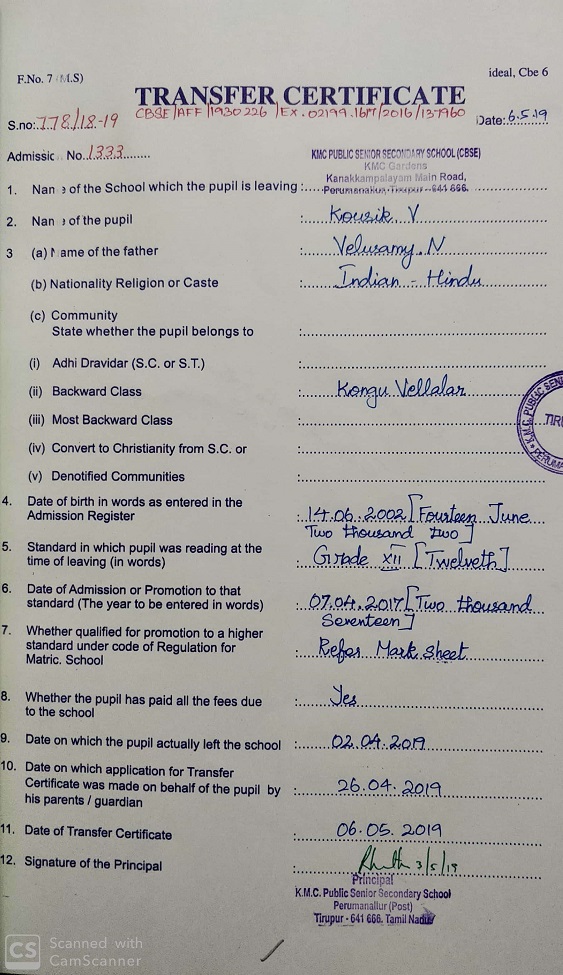 F.No. 7 (M.S)
ideal, Cbe 6
TRANSFER CERTIFICATE
CBSE/AFF/1930226/EX.02199.1617/2016/137960
S.no:778/18-19
Date:6.5.19
Admissic No.1333
KMC PUBLIC SENIOR SECONDARY SCHOOL (CBSE)
KMC Gardens
Kanakkampalayam Main Road,
1. Nan e of the School which the pupil is leaving : Perumanallur, Tirupur - 641 666.
2. Nan e of the pupil : Kousik. V
3 (a) Name of the father : Velusamy. N
(b) Nationality Religion or Caste : Indian - Hindu
(c) Community
State whether the pupil belongs to :
(i) Adhi Dravidar (S.C. or S.T.) :
(ii) Backward Class : Kongu Vellalar
(iii) Most Backward Class :
(iv) Convert to Christianity from S.C. or :
(v) Denotified Communities :
4. Date of birth in words as entered in the
Admission Register : 14.06.2002 [Fourteen June
Two thousand two]
5. Standard in which pupil was reading at the
time of leaving (in words) : Grade XII [Twelveth]
6. Date of Admission or Promotion to that
standard (The year to be entered in words) : 07.04.2017 [Two thousand
Seventeen]
7. Whether qualified for promotion to a higher
standard under code of Regulation for
Matric. School : Refer Mark Sheet
8. Whether the pupil has paid all the fees due
to the school : Yes
9. Date on which the pupil actually left the school : 02.04.2019
10. Date on which application for Transfer
Certificate was made on behalf of the pupil by
his parents / guardian : 26.04.2019
11. Date of Transfer Certificate : 06.05.2019
12. Signature of the Principal : 3/5/19
Principal
K.M.C. Public Senior Secondary School
Perumanallur (Post)
Tirupur - 641 666. Tamil Nadu
K.M.C. PUBLIC SENI
TIRU
PERUMA
CS Scanned with
CamScanner